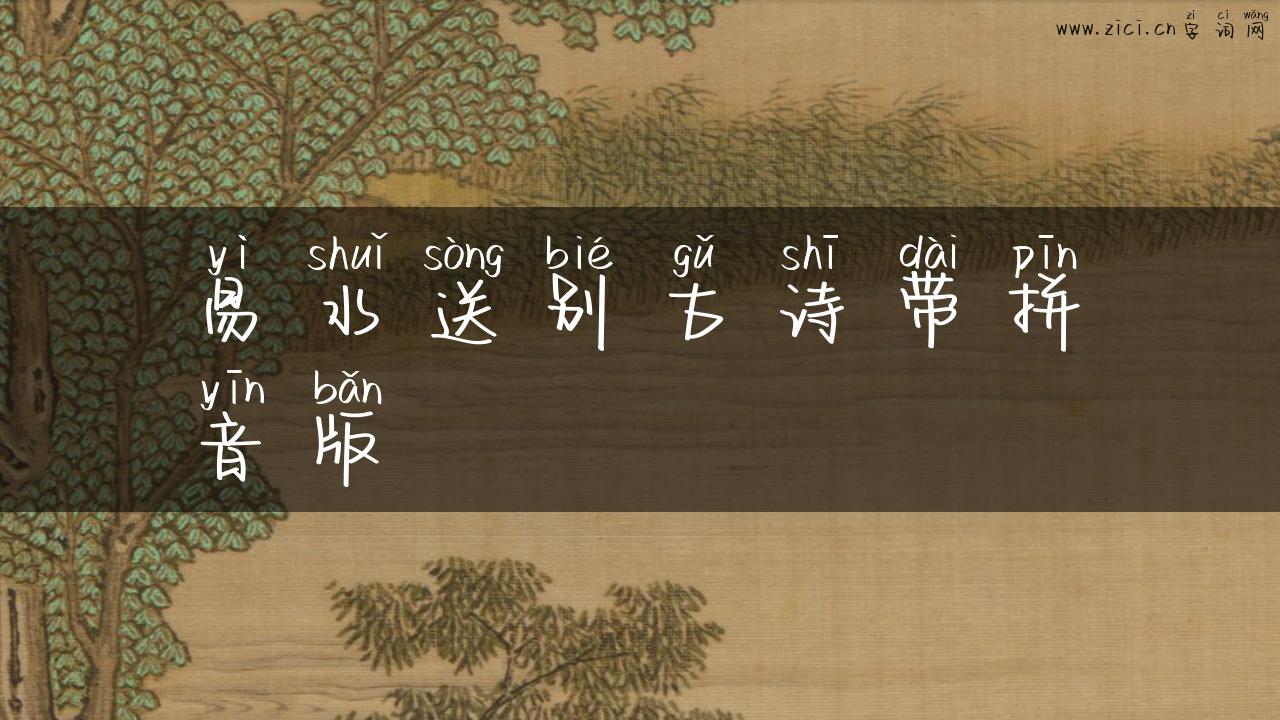 zì cí wǎng
www.zici.cn 字词网
yì shuǐ sòng bié gǔ shī dài pīn
易水送别古诗带拼
yīn bǎn
音版